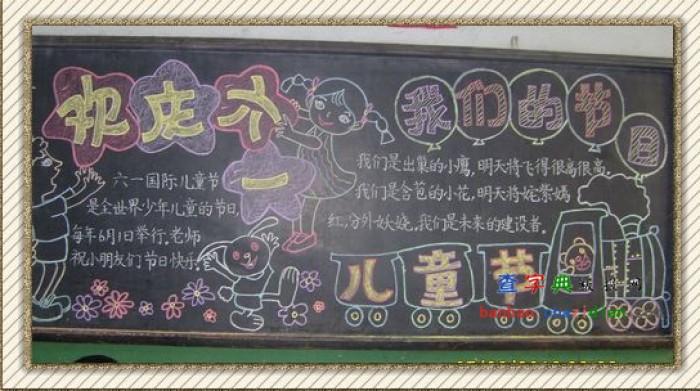 欢庆六一
六一国际儿童节
是全世界少年儿童的节日,
每年6月1日举行.老师
祝小朋友们节日快乐.
我们的节日
我们是出巢的小鹰,明天将飞得很高很高.
我们是含苞的小花,明天将姹紫嫣
红,分外妖娆.我们是未来的建设者.
儿童节
查字典